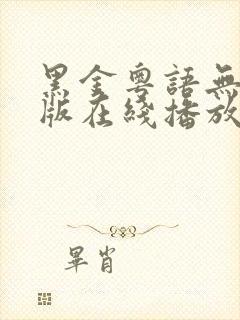 黑金粵語無
版在綫播放
畢肖